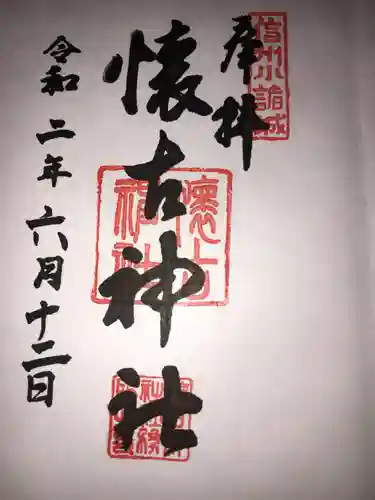 奉拝
信州小諸城
懐古神社
懐古神社
令和二年六月十二日